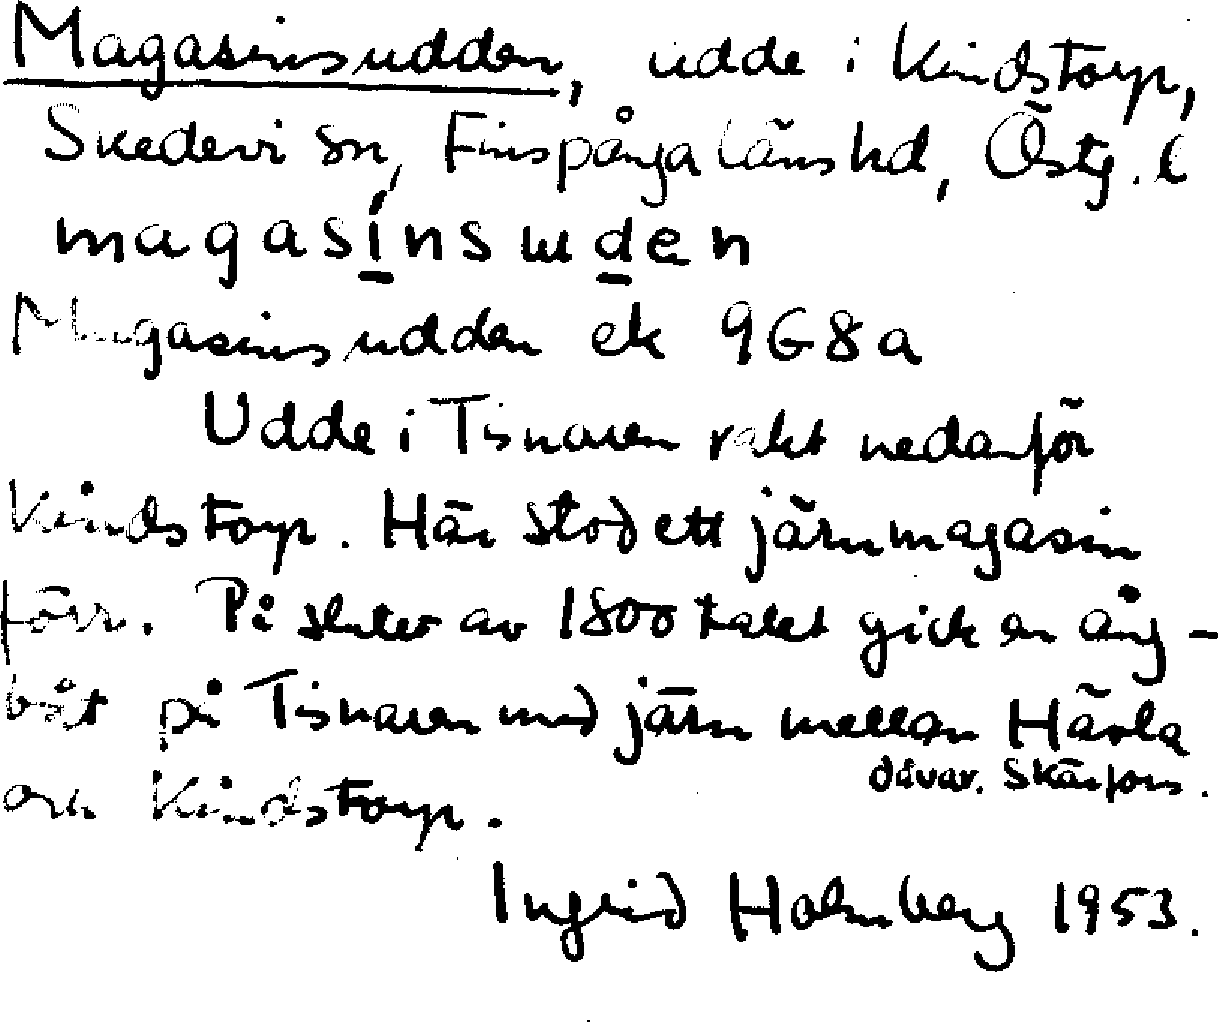 Magasinsudden, udde i Kindstorp,
Skedevi sn, Finspånga läns hd, Östg. l
magasi̱nsuḏen
Magasinsudden ek 9G8a
Udde i Tisnaren rakt nedanför
Kindstorp. Här stod ett järnmagasin
förr. På slutet av 1800 talet gick en ång-
båt på Tisnaren med järn mellan Hävla
och Kindstorp.
dåvar. Skärfors.
Ingrid Holmberg 1953.